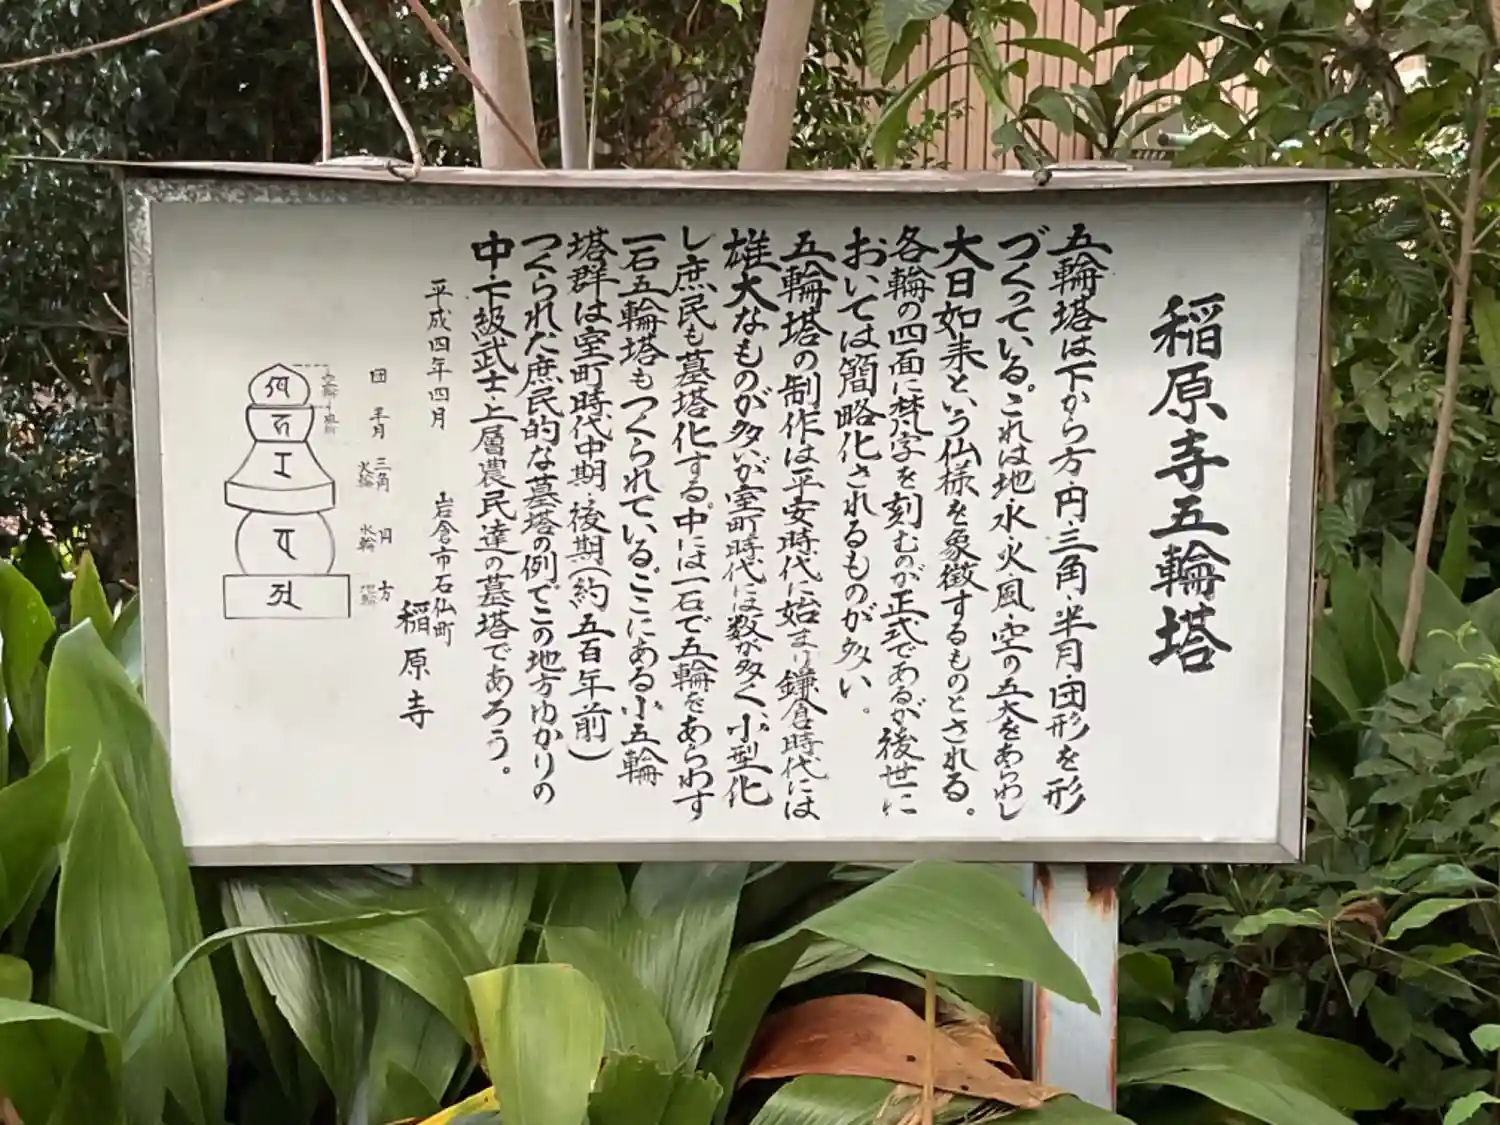 稲原寺五輪塔
五輪塔は下から方・円・三角・半月・団形を形
づくっている。これは地・水・火・風・空の五大をあらわし
大日如来という仏様を象徴するものとされる。
各輪の四面に梵字を刻むのが正式であるが後世に
おいては簡略化されるものが多い。
五輪塔の制作は平安時代に始まり鎌倉時代には
雄大なものが多いが室町時代には数が多く、小型化
し庶民も墓塔化する。中には一石で五輪をあらわす
一石五輪塔もつくられている。ここにある小五輪
塔群は室町時代中期・後期(約五百年前)
つくられた庶民的な墓塔の例でこの地方ゆかりの
中・下級武士・上層農民達の墓塔であろう。
平成四年四月
岩倉市石仏町
稲原寺
団
半月
三角
火輪
円
水輪
方
地輪